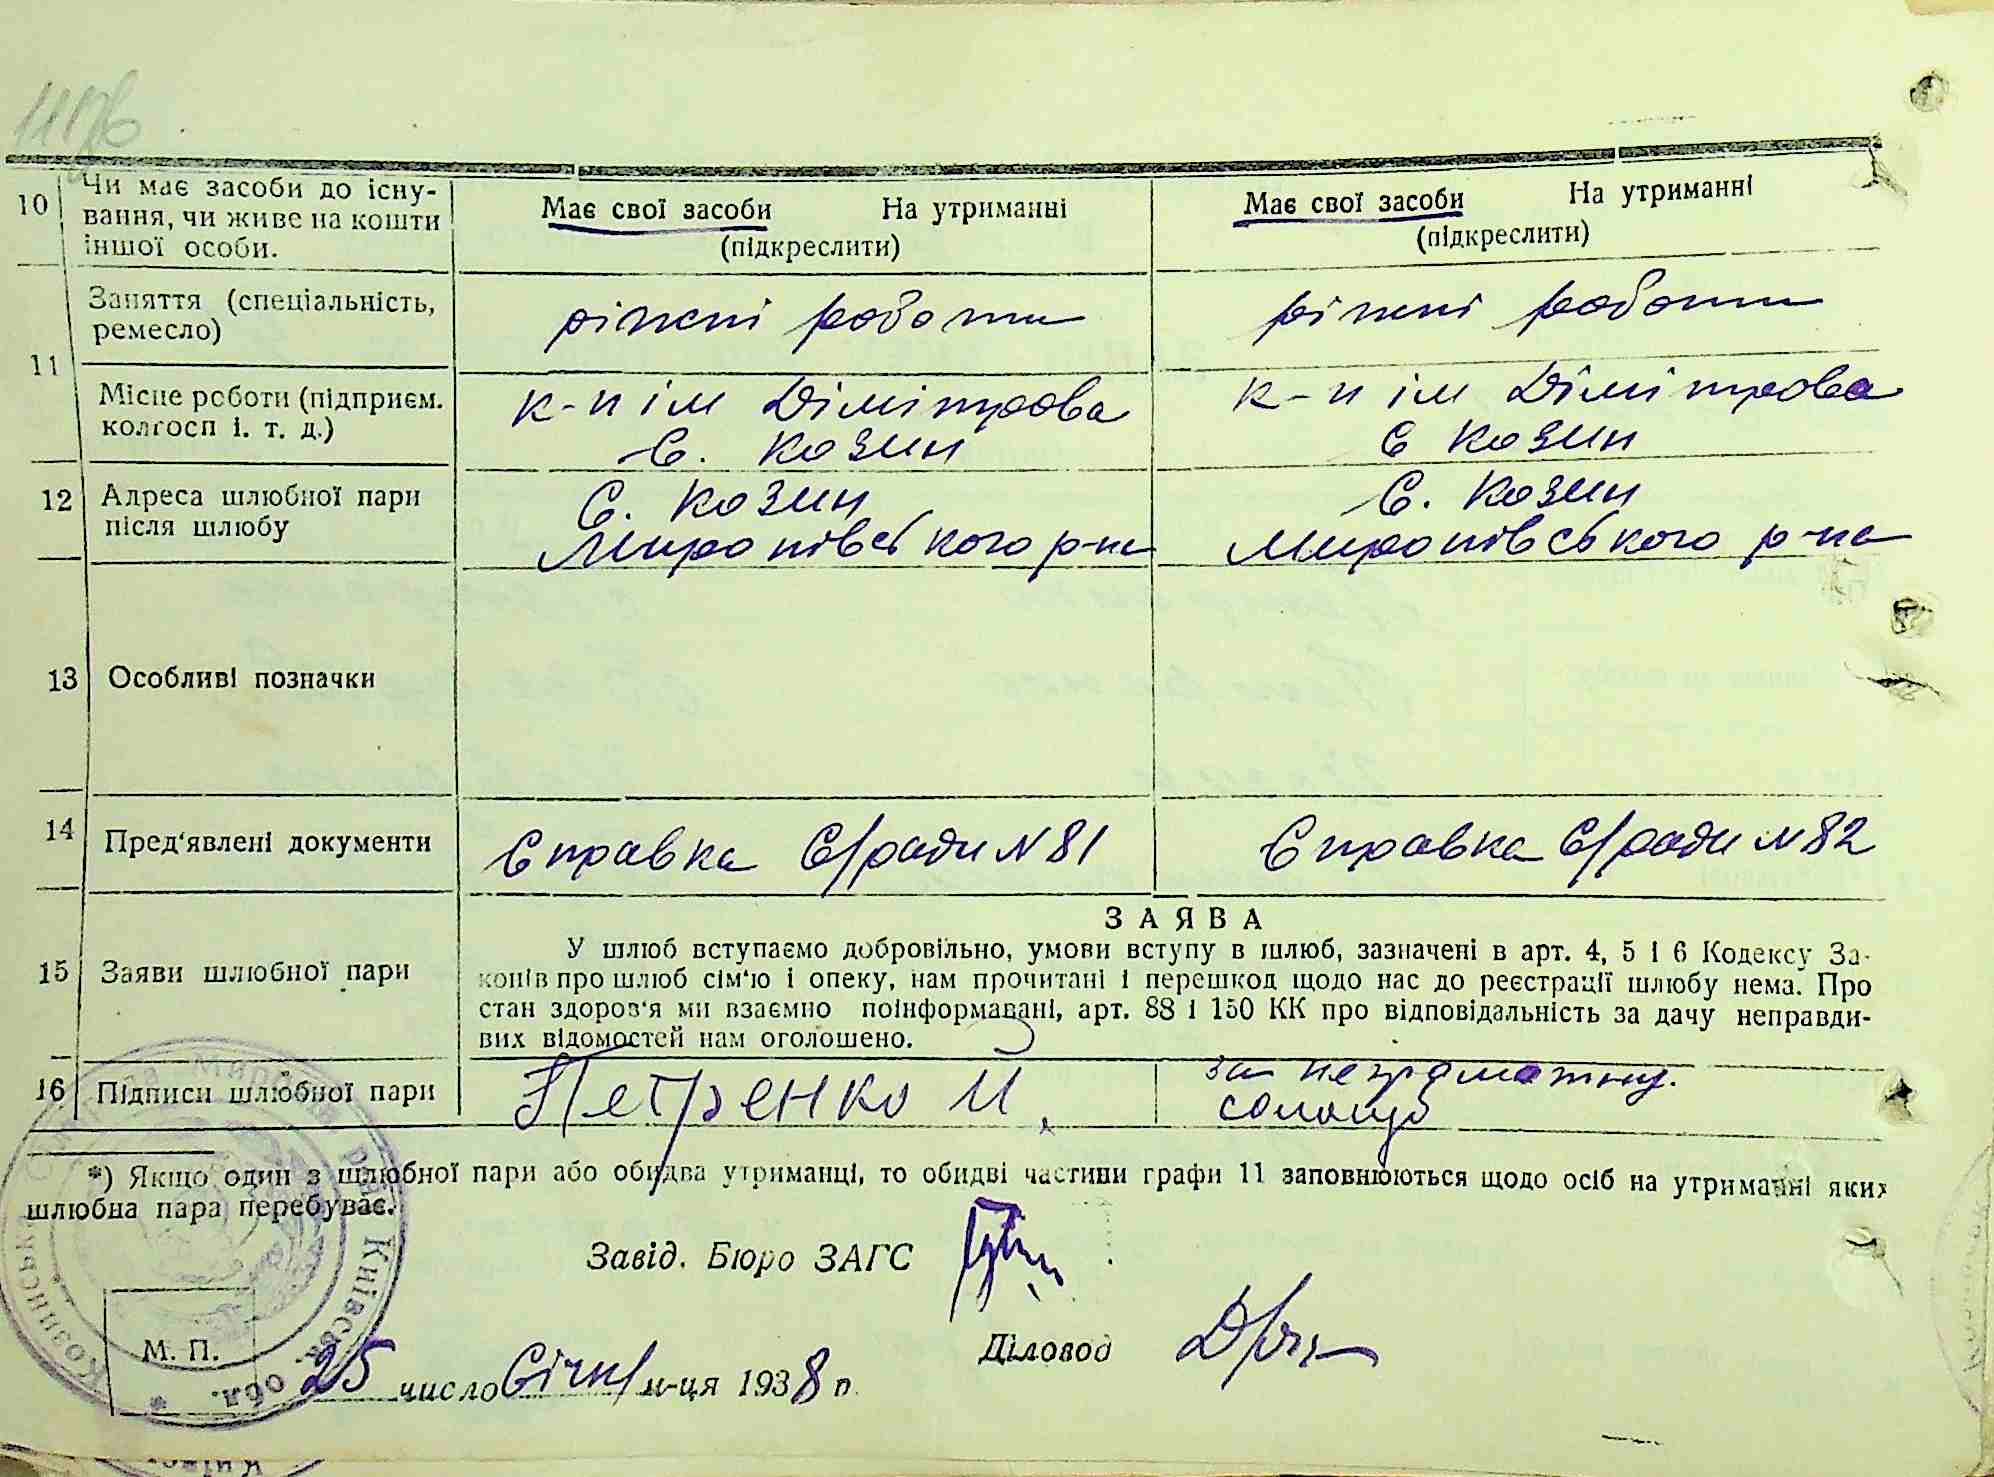 10 Чи має засоби до існу-
вання, чи живе на кошти
іншої особи.
Має свої засоби На утриманні
(підкреслити)
Має свої засоби На утриманні
(підкреслити)
11 Заняття (спеціальність,
ремесло)
ріжні роботи
ріжні роботи
Місце роботи (підприєм.
колгосп і. т. д.)
к-п ім Дімітрова
с. Козин
к-п ім Дімітрова
с Козин
12 Адреса шлюбної пари
після шлюбу
С. Козин
Миронівського р-на
С. Козин
Миронівського р-на
13 Особливі позначки
14 Пред‘явлені документи
Справка С/ради N 81
Справка С/ради N 82
15 Заяви шлюбної пари
ЗАЯВА
У шлюб вступаємо добровільно, умови вступу в шлюб, зазначені в арт. 4, 5 і 6 Кодексу За-
конів про шлюб сім‘ю і опеку, нам прочитані і перешкод щодо нас до реєстрації шлюбу нема. Про
стан здоров‘я ми взаємно поінформавані, арт. 88 і 150 КК про відповідальність за дачу неправди-
вих відомостей нам оголошено.
16 Підписи шлюбної пари
Петренко И.
за неграмотну.
*) Якщо один з шлюбної пари або обидва утриманці, то обидві частини графи 11 заповнюються щодо осіб на утриманні яких
шлюбна пара перебуває.
Завід. Бюро ЗАГС
Діловод
М. П.
25 число Січня м-ця 1938 р.
Козинська Миронівськ. рай. Київськ. обл.